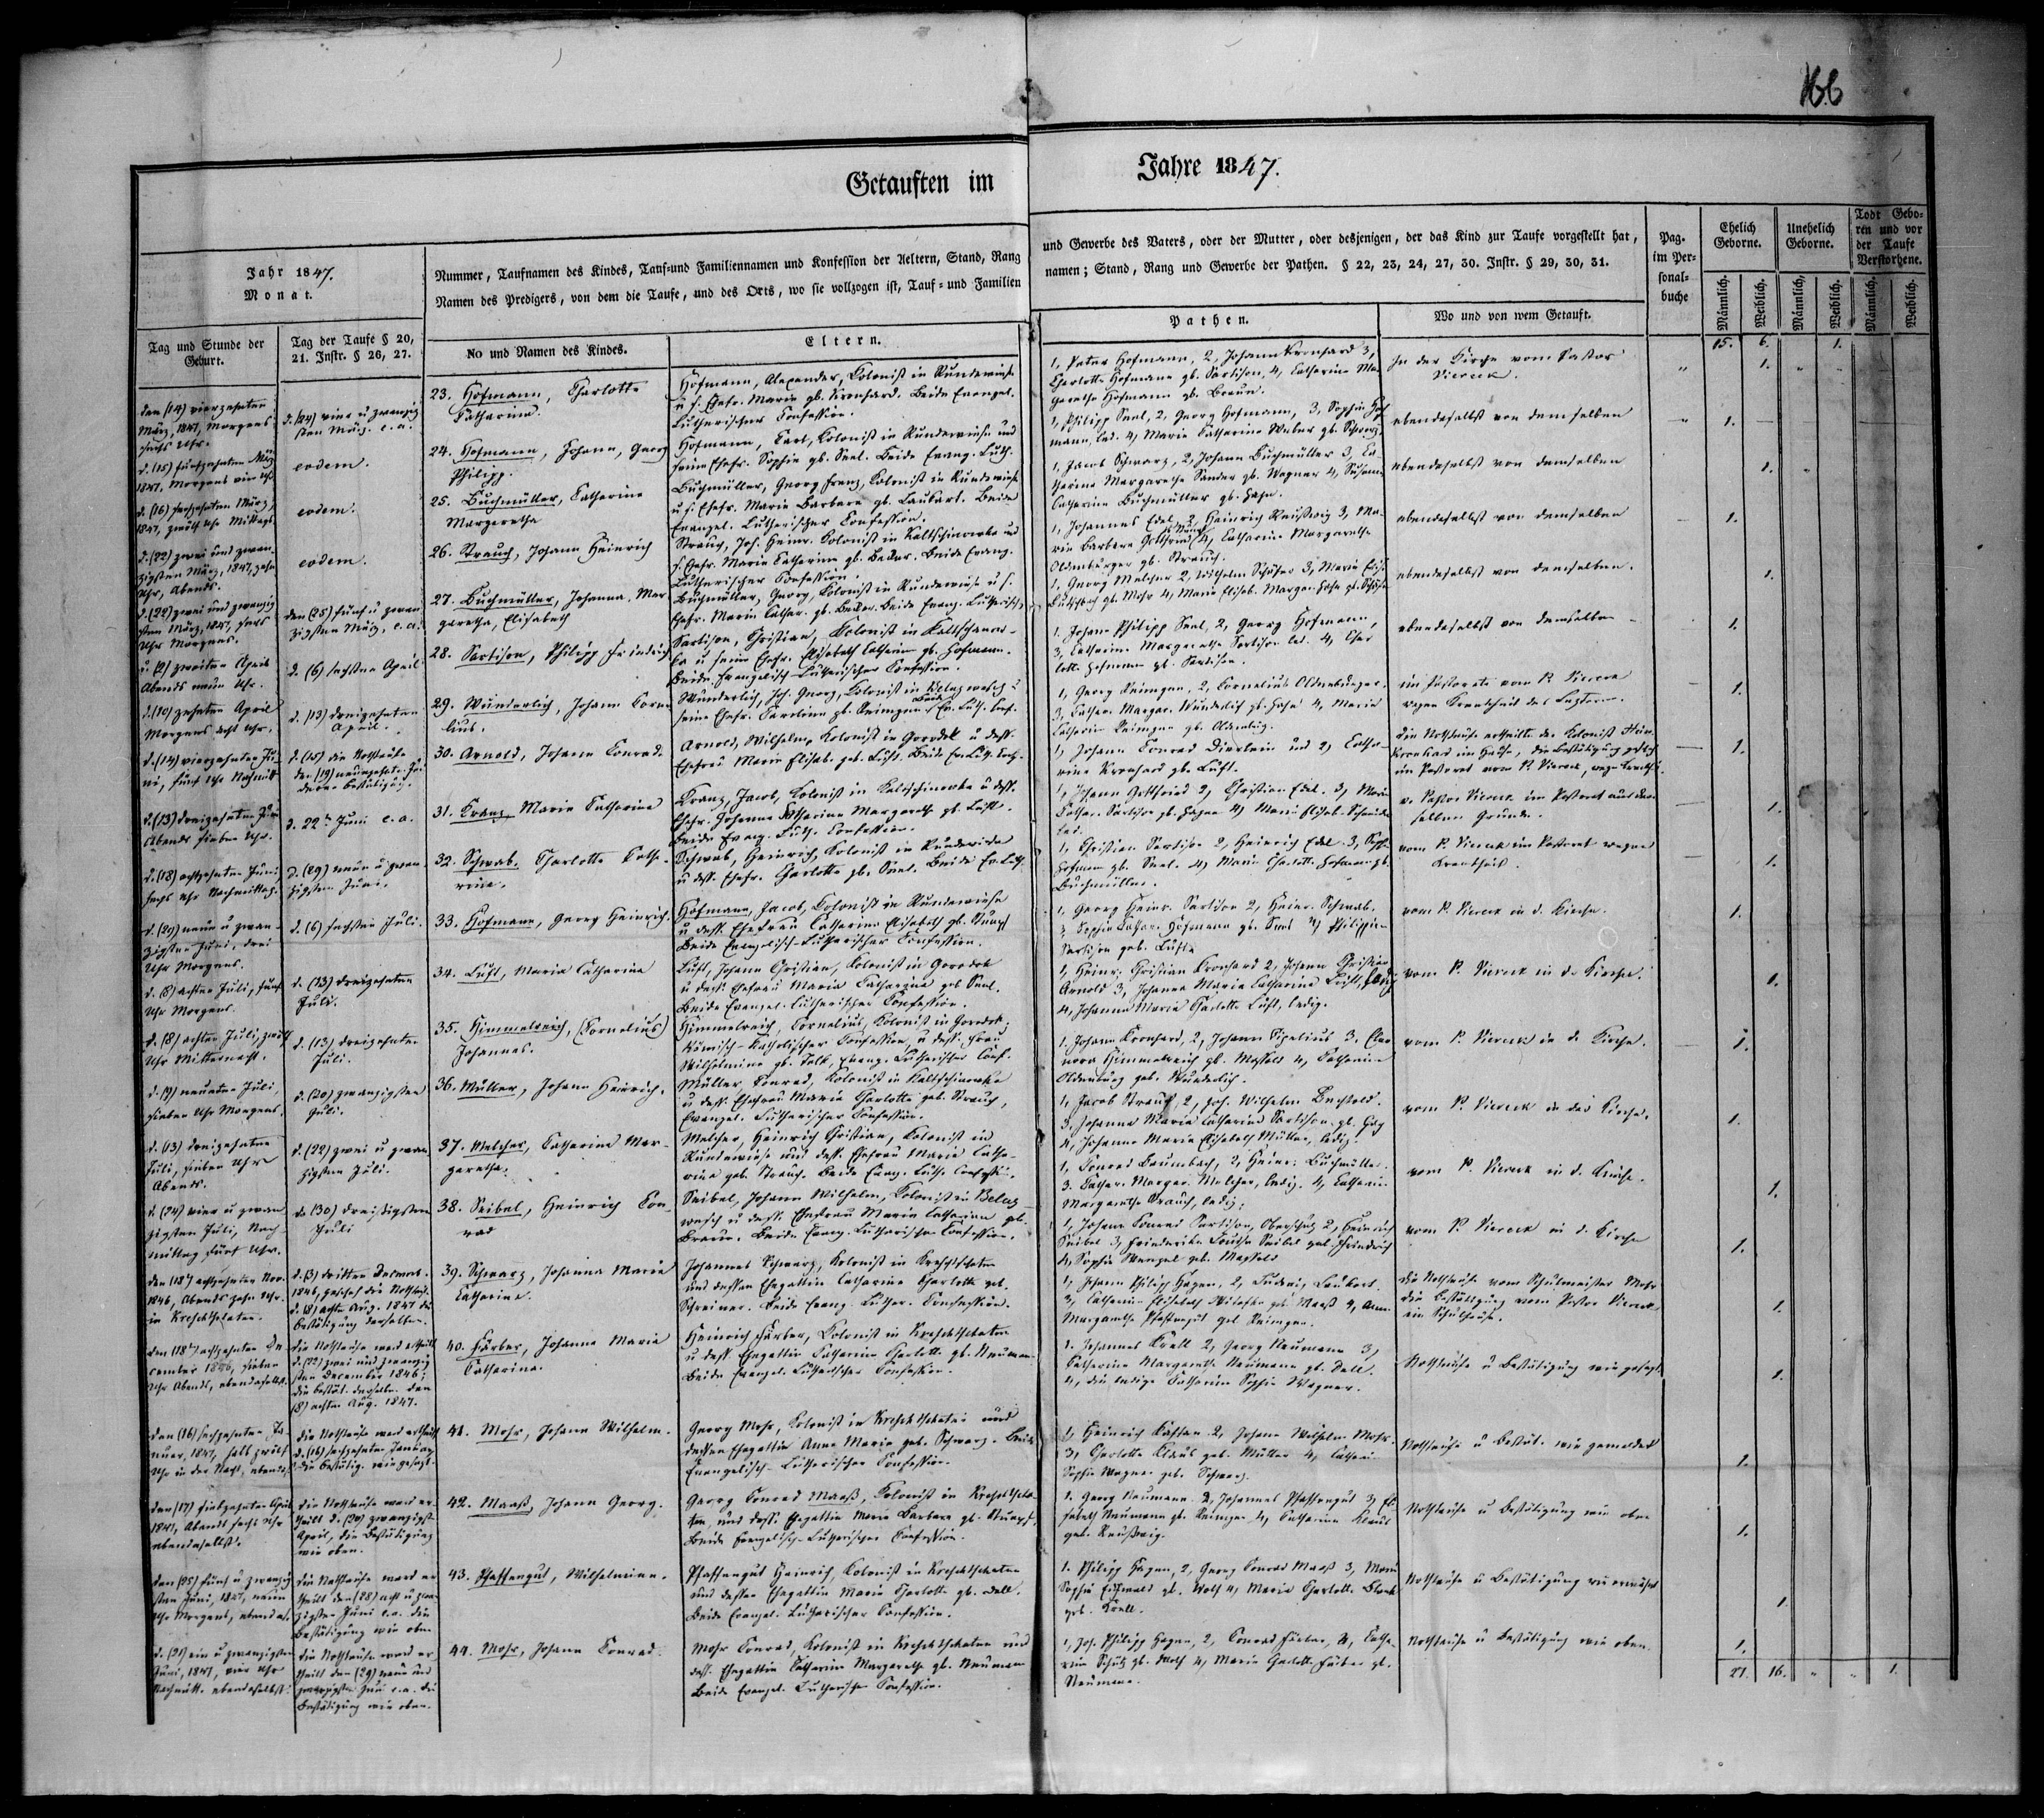 166
Getauften im Jahre 1847.
Jahr 1847.
Monat.
Nummer, Taufnamen des Kindes, Tauf-und Familiennamen und Konfession der Aeltern, Stand, Rang und Gewerbe des Vaters, oder der Mutter, oder desjenigen, der das Kind zur Taufe vorgestellt hat,
Namen des Predigers, von dem die Taufe, und des Orts, wo sie vollzogen ist, Tauf- und Familien namen; Stand, Rang und Gewerbe der Pathen. § 22, 23, 24, 27, 30. Instr. § 29, 30, 31.
Pag.
im Per-
sonal-
buche
Ehelich
Geborne.
Unehelich
Geborne.
Todt Gebo-
ren und vor
der Taufe
Verstorbene.
Männlich.
Weiblich.
Männlich.
Weiblich.
Männlich.
Weiblich.
Tag und Stunde der
Geburt.
Tag der Taufe § 20,
21. Instr. § 26, 27.
No und Namen des Kindes.
Eltern.
Pathen.
Wo und von wem Getauft.
15. 6. 1.
den (14) vierzehnten
März, 1847, Morgens
sechs Uhr.
d. (24) vier u zwanzig
sten März. e. a.
23. Hofmann, Charlotte
Catharina.
Hofmann, Alexander, Kolonist in Rundewiese
u s. Ehefr. Maria gb. Kronhard. Beide Evangel.
Lutherischer Confession.
1, Peter Hofmann, 2, Johann Kronhard 3,
Charlotte Hofmann gb. Sartison, 4, Catharina Mar
garetha Hofmann gb. Braun.
In der Kirche vom Pastor
Viereck.
1.
d. (15) fünfzehnten März
1847, Morgens ein Uhr
eodem.
24. Hofmann, Johann, Georg
Philipp.
Hofmann, Carl, Kolonist in Rundewiese und
seine Ehefr. Sophie gb. Seel. Beide Evang. Luth.
1, Philipp Seel, 2, Georg Hofmann, 3, Sophie Hof
mann, led. 4, Maria Catharina Weber gb. Schwarz.
ebendaselbst von demselben
1.
d. (16) sechzehnten März,
1847, zwölf Uhr Mittags.
eodem.
25. Buchmüller, Catharina
Margaretha
Buchmüller, Georg Franz, Kolonist in Rundewiese
u s. Ehefr. Maria Barbara gb. Laukart. Beide
Evangel. Lutherischer Confession.
1, Jacob Schwarz, 2, Johann Buchmüller 3, Ca
tharina Margaretha Sander gb. Wagner 4, Susanna
Catharina Buchmüller gb. Hahn.
ebendaselbst von demselben
1.
d. (22) zwei und zwan-
zigsten März, 1847, zehn
Uhr, Abends.
eodem.
26. Strauch, Johann Heinrich
Strauch, Joh. Heinr. Kolonist in Kaltschinowka und
s. Ehefr. Maria Catharina gb. Becker. Beide Evang.
Lutherischer Confession.
1, Johannes Edel, 2, Heinrich Reußwig 3, Ma-
ria Barbara Gottfried 4, Catharina Margaretha
Oldenburger gb. Strauch.
ebendaselbst von demselben
1.
d. (22) zwei und zwanzig
sten März, 1847, sechs
Uhr Morgens.
den (25) fünf u zwan
zigsten März, e. a.
27. Buchmüller, Johanna, Mar
garetha, Elisabeth
Buchmüller, Georg, Kolonist in Rundewiese u s.
Ehefr. Maria Cathar. gb. Becker. Beide Evang. Lutherisch
1, Georg Melcher 2, Wilhelm Schäfer 3, Maria Elis.
gb. Mohr 4, Maria Elisab. Margar. Hahn gb. Schäfer
ebendaselbst von demselben.
1.
d. (2) zweiten April
Abends neun Uhr.
d. (6) sechsten April
28. Sartison, Philipp Friedrich
Sartison, Christian, Kolonist in Kaltschinow-
ka u seine Ehefr. Elisabeth Catharina gb. Hofmann.
Beide Evangelisch-Lutherischer Confession.
1. Johann Philipp Seel, 2, Georg Hofmann,
3, Catharina Margaretha Sartison led. 4, Char
lotte Hofmann gb. Sartison.
ebendaselbst von demselben
1.
d. (10) zehnten April
Morgens acht Uhr.
d. (13) dreizehnten
April.
29. Wunderlich, Johann Corne
lius.
Wunderlich, Joh. Georg, Kolonist in Belagwesch u
seine Ehefr. Carolina gb. Reimgen Beide Ev. Luth. Conf.
1, Georg Reimgen, 2, Cornelius Oldenburger.
3, Cathar. Margar. Wunderlich gb. Hahn 4, Maria
Catharina Reimgen gb. Oldenburg.
im Pastorate vom P. Viereck
wegen Krankheit des Letztern.
1.
d. (14) vierzehnten Ju
ni, fünf Uhr Nachmitt.
d. (15) die Nothtaufe
den (19) neunzehnten Ju
deren Bestätigung.
30. Arnold, Johann Conrad.
Arnold, Wilhelm, Kolonist in Gorodok u dess.
Ehefrau Maria Elisab. geb. Luft. Beide Ev. Luth. Conf.
1, Johann Conrad Dierlein und 2, Catha-
rina Kronhard gb. Luft.
Die Nothtaufe ertheilte der Kolonist Heinr.
Kronhard im Hause, die Bestätigung geschah
im Pastorat vom P. Viereck, wegen Krankh.
1.
d. (13) dreizehnten Juni
Abends sieben Uhr.
d. 22n Juni e. a.
31. Kranz, Maria Catharina
Kranz, Jacob, Kolonist in Kaltschinowka u dess.
Ehefr. Johanna Catharina Margareth gb. Luft.
Beide Evang. Luth. Confession.
1, Johann Gottfried 2, Christian Edel. 3, Maria
Cathar. Sartison gb. Hagen 4, Maria Elisab. Schneider
led.
v. Pastor Viereck im Pastorat aus dem
selben Grunde.
1.
d. (18) achtzehnten Juni
sechs Uhr Nachmittags.
d. (29) neun u zwan
zigsten Juni.
32. Schwab, Charlotte Catha-
rina.
Schwab, Heinrich, Kolonist in Rundewiese
u dess. Ehefr. Charlotte gb. Seel. Beide Ev. Luth.
1, Christian Sartison 2, Heinrich Edel 3, Sophie
Hofmann gb. Seel. 4, Maria Charlotte Hofmann gb.
Buchmüller.
vom P. Viereck im Pastorat wegen
Krankheit.
1.
d. (29) neun u zwan-
zigsten Juni, drei
Uhr Morgens.
d. (6) sechsten Juli.
33. Hofmann, Georg Heinrich.
Hofmann, Jacob, Kolonist in Rundewiese
u dess. Ehefrau Catharina Elisabeth gb. Stumpf
Beide Evangelisch-Lutherischer Confession.
1, Georg Heinr. Sartison 2, Heinr. Schwab.
3, Sophie Cathar. Hofmann gb. Seel 4, Philippine
Sartison geb. Luft
vom P. Viereck in d. Kirche.
1.
d. (8) achten Juli, fünf
Uhr Morgens.
d. (13) dreizehnten
Juli.
34. Luft, Maria Catharina
Luft, Johann Christian, Kolonist in Gorodok
u dess. Ehefrau Maria Catharina geb Seel.
Beide Evangel. Lutherischer Confession.
1, Heinr. Christian Kronhard 2, Johann Christian
Arnold 3, Johanna Maria Catharina Luft, ledig
4, Johanna Maria Charlotte Luft, ledig.
vom P. Viereck in d. Kirche.
1.
d. (8) achten Juli, zwölf
Uhr Mitternacht.
d. (13) dreizehnten
Juli.
35. Himmelreich, (Cornelius)
Johannes.
Himmelreich, Cornelius, Kolonist in Gorodok;
Römisch-Katholischer Confession, u dess. Frau
Wilhelmina gb. Falk, Evang. Lutherischer Conf.
1. Johann Kronhard, 2, Johann 3. Elea
nora Himmelreich gb. 4, Catharina
Oldenburg geb. Wunderlich.
vom P. Viereck in d. Kirche.
1.
d. (9) neunten Juli,
sieben Uhr Morgens.
d. (20) zwanzigsten
Juli.
36. Müller, Johann Heinrich.
Müller, Conrad, Kolonist in Kaltschinowka
u dess. Ehefrau Maria Charlotte geb. Strauch,
Evangel. Lutherischer Confession.
1, Jacob Strauch, 2, Joh. Wilhelm Bechtold.
3, Johanna Maria Catharina Sartison gb. Hag
4, Johanna Maria Elisabeth Müller, ledig.
vom P. Viereck in der Kirche.
1.
d. (13) dreizehnten
Juli, sieben Uhr
Abends.
d. (22) zwei u zwan
zigsten Juli.
37. Melcher, Catharina Mar-
garetha.
Melcher, Heinrich Christian, Kolonist in
Rundewiese und dess. Ehefrau Maria Catha-
rina geb. Strauch. Beide Evang. Luth. Confession.
1, Conrad Baumbach, 2, Heinr. Buchmüller.
3. Cathar. Margar. Melcher, ledig. 4, Catharina
Margaretha Strauch, ledig.
vom P. Viereck in d. Kirche.
1.
d. (24) vier u zwan
zigsten Juli, Nach-
mittag fünf Uhr.
den (30) dreißigsten
Juli
38. Seibel, Heinrich Con-
rad
Seibel, Johann Wilhelm, Kolonist in Belag
wesch u dess. Ehefrau Maria Catharina gb.
Braun. Beide Evang. Lutherischer Confession.
1, Johann Conrad Sartison, Oberschulz 2, Heinrich
Seibel 3, Friederike Louise Seibel geb. Friedrich
4, Sophie Wenzel geb.
vom P. Viereck in d. Kirche
1.
den (18) achtzehnten Nov.
1846, Abends zehn Uhr.
in Kreschtschaten.
d. (3) dritten Decemb.
1846, geschah die Nothtauf.
d. (8) achten Aug. 1847 die
Bestätigung derselben.
39. Schwarz, Johanna Maria
Catharina.
Johannes Schwarz, Kolonist in Kreschtschaten
und dessen Ehegattin Catharina Charlotte geb.
Schreiner. Beide Evang. Luther. Confession.
1, Johann Philipp Hagen, 2, Laukart.
3, Catharina Elisabeth geb. Maaß 4, Anna
Margaretha Pfaffengut geb Reimgen.
Die Nothtaufe vom Schulmeister Mohr
die Bestätigung vom Pastor Viereck
im Schulhause.
1.
den (18) achtzehnten De
cember 1846, sieben
Uhr Abends, ebendaselbst.
Die Nothtaufe ward ertheilt
d. (22) zwei und zwanzig
sten December 1846;
die Bestät. derselben den
(8) achten Aug. 1847.
40. Färber, Johanna Maria
Catharina.
Heinrich Färber, Kolonist in Kreschtschaten
u dess. Ehegattin Catharina Charlotte gb. Neumann.
Beide Evangel. Lutherischer Confession.
1. Johannes Krell 2, Georg Neumann 3,
Catharina Margaretha Neumann gb. Dell.
4, die ledige Catharina Sophie Wagner.
Nothtaufe u Bestätigung wie gesagt
1.
den (16) sechzehnten Ja
nuar, 1847, halb zwölf
Uhr in der Nacht, ebendas.
Die Nothtaufe ward ertheilt
d. (16) sechzehnten Januar,
die Bestätig. wie gesagt.
41. Mohr, Johann Wilhelm.
Georg Mohr, Kolonist in Kreschtschaten und
dessen Ehegattin Anna Maria geb. Schwarz. Beide
Evangelisch-Lutherischer Confession.
1, Heinrich 2, Johann Wilhelm Mohr.
3, Charlotte Klaus geb. Müller 4, Cathari
Sophie Wagner geb. Schwarz.
Nothtaufe u Bestät. wie gemeldet
1.
den (17) siebzehnten April
1847, Abends sechs Uhr
ebendaselbst.
Die Nothtaufe ward er-
theilt d. (20) zwanzigst.
April, die Bestätigung
wie oben.
42. Maaß, Johann Georg.
Georg Conrad Maaß, Kolonist in Kreschtscha
ten und dess. Ehegattin Maria Barbara gb. Stumpf,
Beide Evangelisch-Lutherischer Confession.
1. Georg Neumann 2, Johannes Pfaffengut 3, Eli
sabeth Neumann gb. Reimgen 4, Catharina Klaus
geb. Reußwig.
Nothtaufe u Bestätigung wie oben
1.
den (25) fünf u zwanzig
sten Juni, 1847, neun
Uhr Morgens, ebendas.
Die Nothtaufe ward er
theilt den (28) acht u zwan
zigsten Juni e. a. die
Bestätigung wie oben
43. Pfaffengut, Wilhelmina.
Pfaffengut Heinrich, Kolonist in Kreschtschaten
und dessen Ehegattin Maria Charlotte gb. Dell.
Beide Evangel. Lutherischer Confession.
1. Philipp Hagen, 2, Georg Conrad Maaß 3, Maria
Sophie Eichwald gb. Wolf 4, Maria Charlotte
geb. Krell.
Nothtaufe u Bestätigung wie erwähnt
1.
d. (21) ein u zwanzigsten
Juni, 1847, vier Uhr
Nachmitt. ebendaselbst.
Die Nothtaufe ward er
theilt den (29) neun und
zwanzigsten Juni e. a. die
Bestätigung wie oben.
44. Mohr, Johann Conrad.
Mohr Conrad, Kolonist in Kreschtschaten und
dess. Ehegattin Catharina Margaretha gb. Neumann
Beide Evangel. Lutherischer Confession.
1, Joh. Philipp Hagen, 2, Conrad Färber, 3, Catha
rina Schulz gb. Wolf 4, Maria Charlotte Färber gb.
Neumann.
Nothtaufe u Bestätigung wie oben.
1.
27. 16. " " 1.